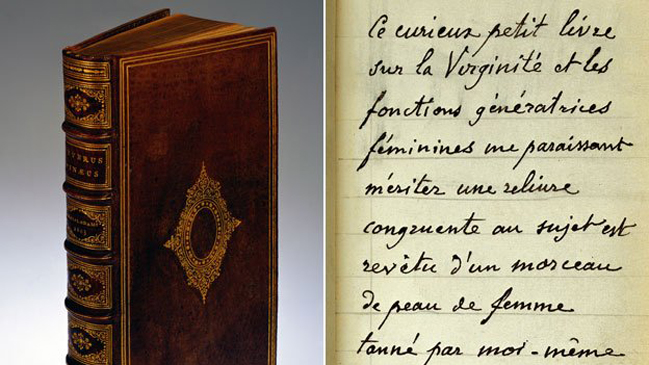 Ce curieux petit livre
sur la Virginité et les
fonctions génératrices
féminines me paraissant
mériter une reliure
congruente au sujet est
revêtu d'un morceau
de peau de femme
tanné par moi-même